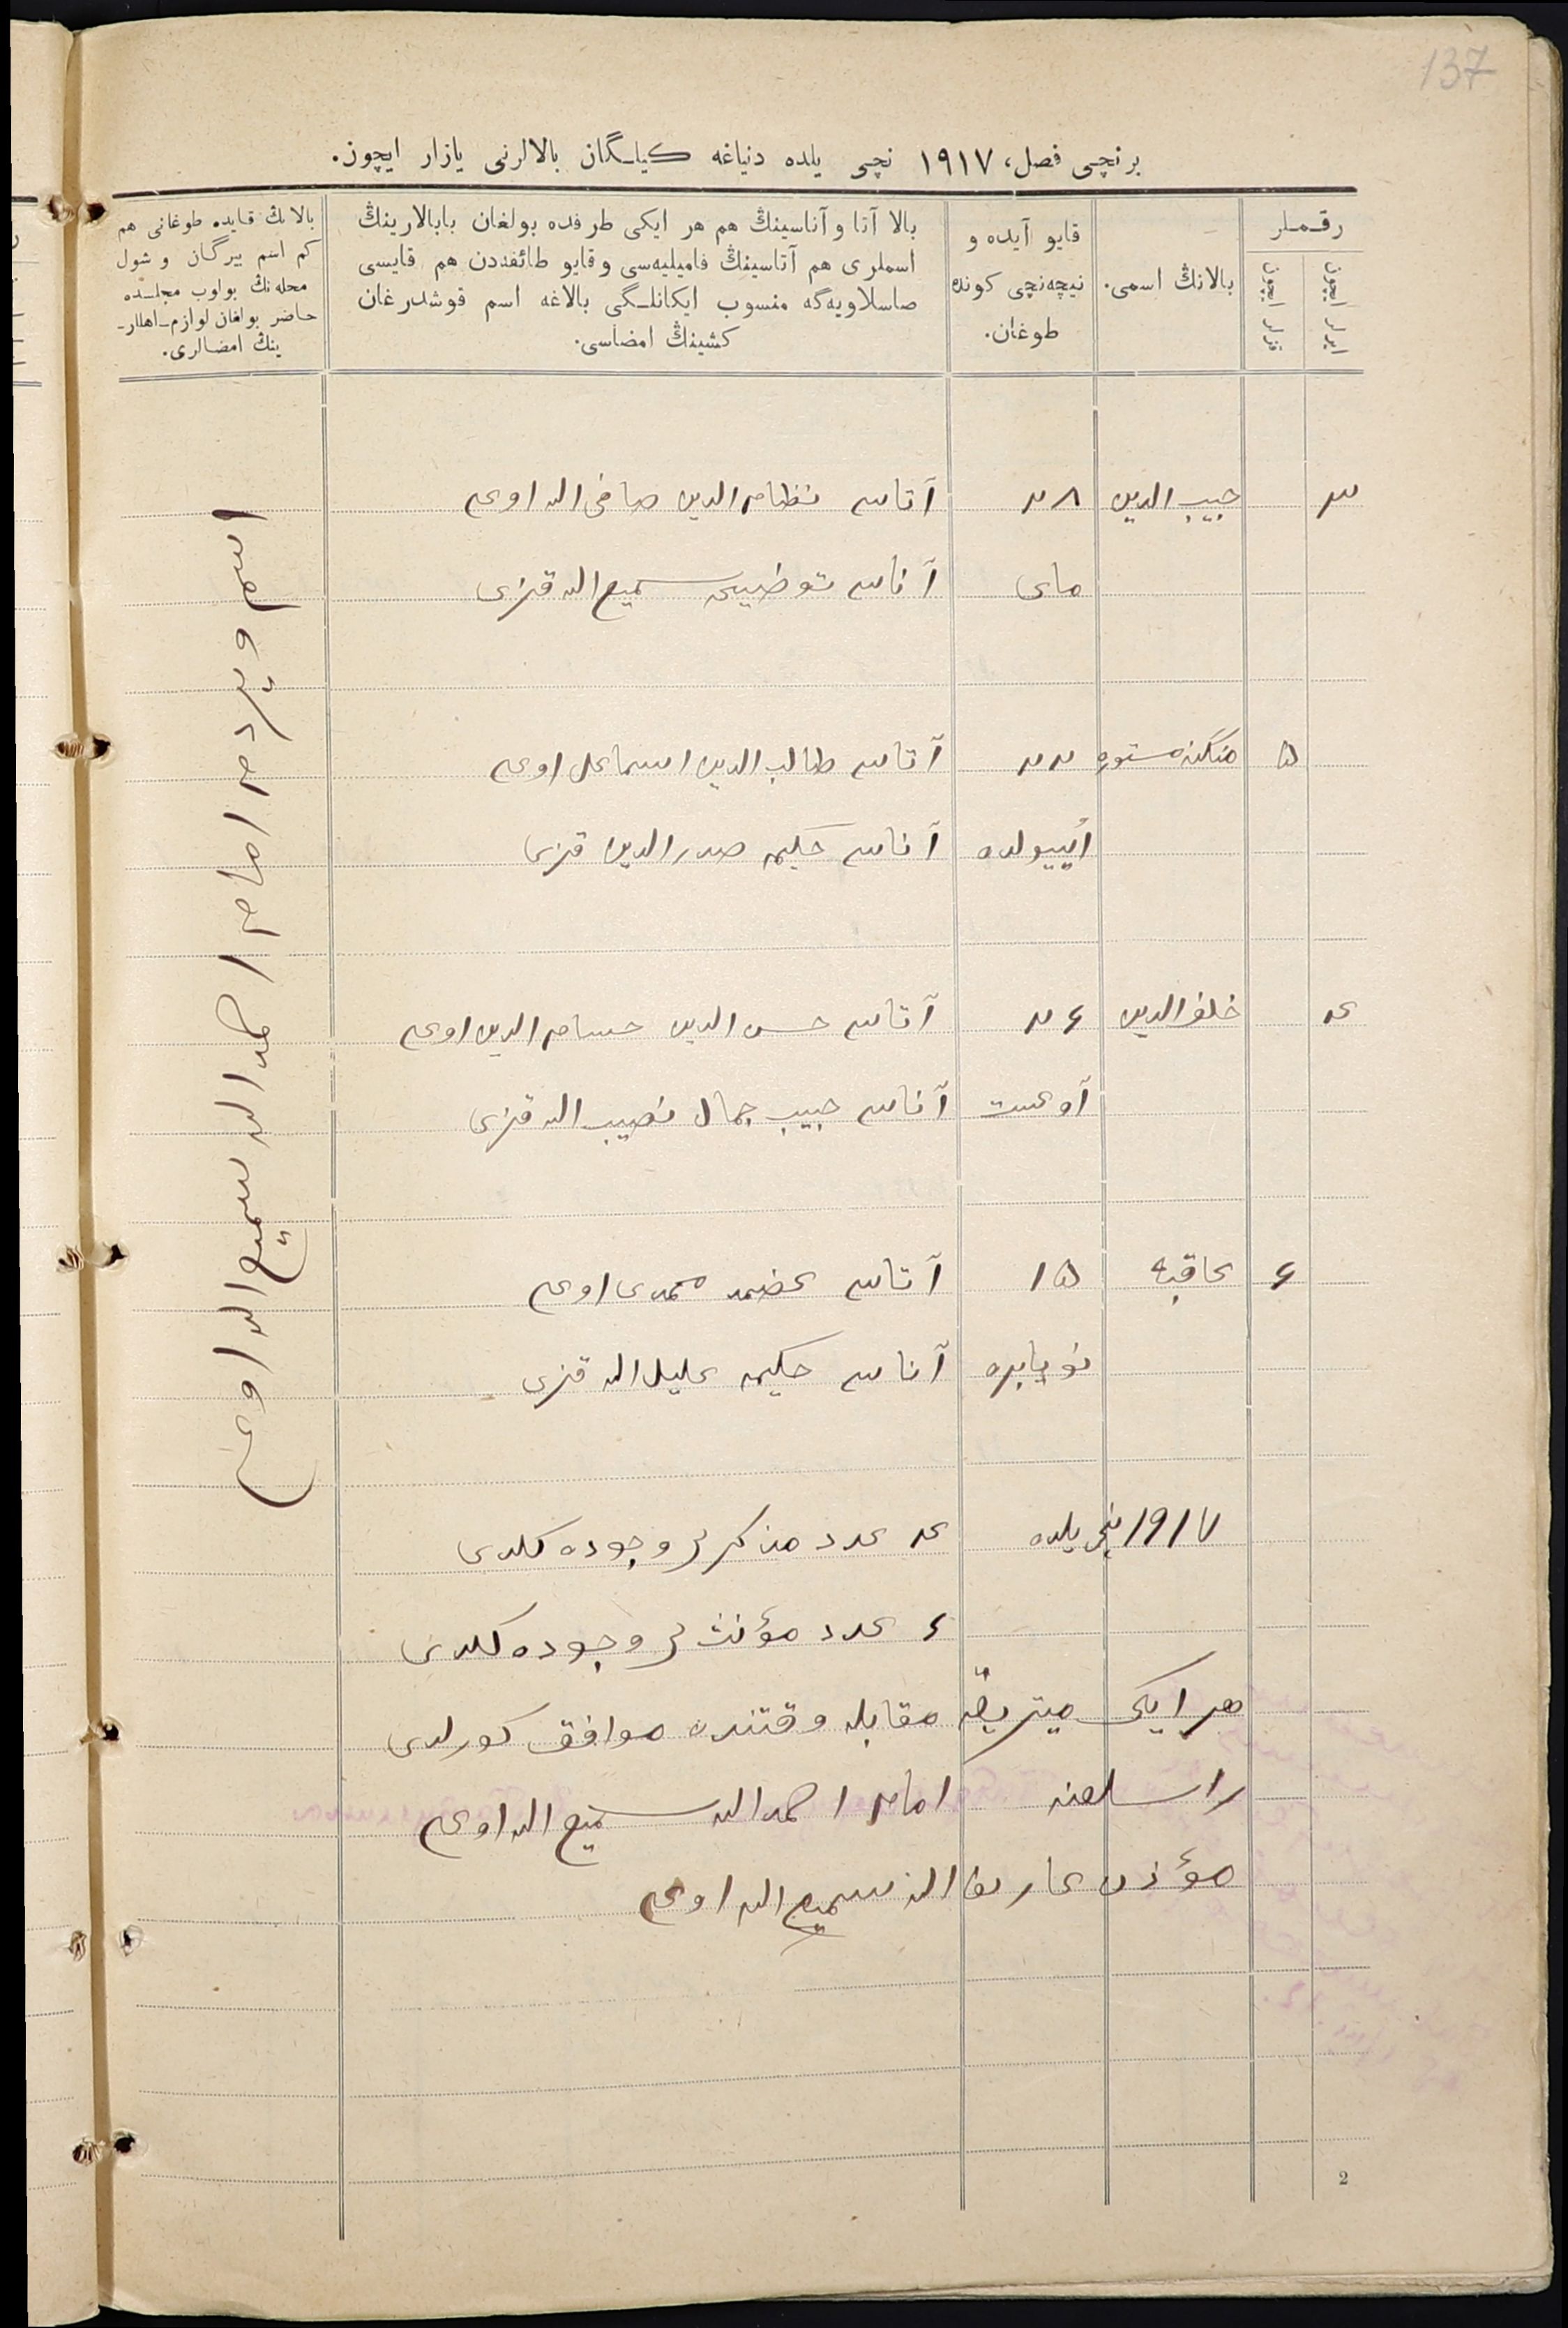 137
برنچی فصل، ١٩١٧ نچی یلده دنیاغه کیلـگان بالالرنی یازار ایچون.
رقـملر
ایرلر ایچون
قزلر ایچون
بالانڭ اسمی.
قایو آیده و
نیچه‌نچی کونده
طوغان.
بالا آتا و آناسینڭ هم هر ایکی طرفده بولغان بابالارینڭ
اسملری هم آتاسینڭ فامیلیه‌سی و قایو طائفه‌دن هم قایسی
صاسلاویه‌گه منسوب ایکانلـگی بالاغه اسم قوشدرغان
کشینڭ امضاسی.
بالانڭ قایده طوغانی هم
کم اسم بیرگان و شول
محله‌نڭ بولوب مجلـسده
حاضر بولغان لوازم-اهللر-
ینڭ امضالری.
٣ حبیب الدین ٢٨ آتاسی نظام الدین صافی الله اوغلی
مای آناسی توضیحه سمیع الله قزی
۵ مستوره ٢٢ آتاسی طالب الدین اسماعیل اوغلی
ایییولده آناسی حکیمه صدر الدین قزی
٤ خلف الدین ٢٦ آتاسی حسن الدین حسام الدین اوغلی
آوغست آناسی حبیب جمال نصیب الله قزی
٦ عاقبه ١۵ آتاسی محمدی اوغلی
نویابره آناسی حکیمه علیل الله قزی
١٩١٧ نچی یلده ٤ عدد مذکرلر وجوده کلدی
٦ عدد مؤنثلر وجوده کلدی
هر ایکی میتریقه مقابله وقتنده موافق کورلدی
امام احمد الله سمیع الله اوغلی
مؤذن عارف الله سمیع الله اوغلی
اسم ویردم امام احمد الله سمیع الله اوغلی
2